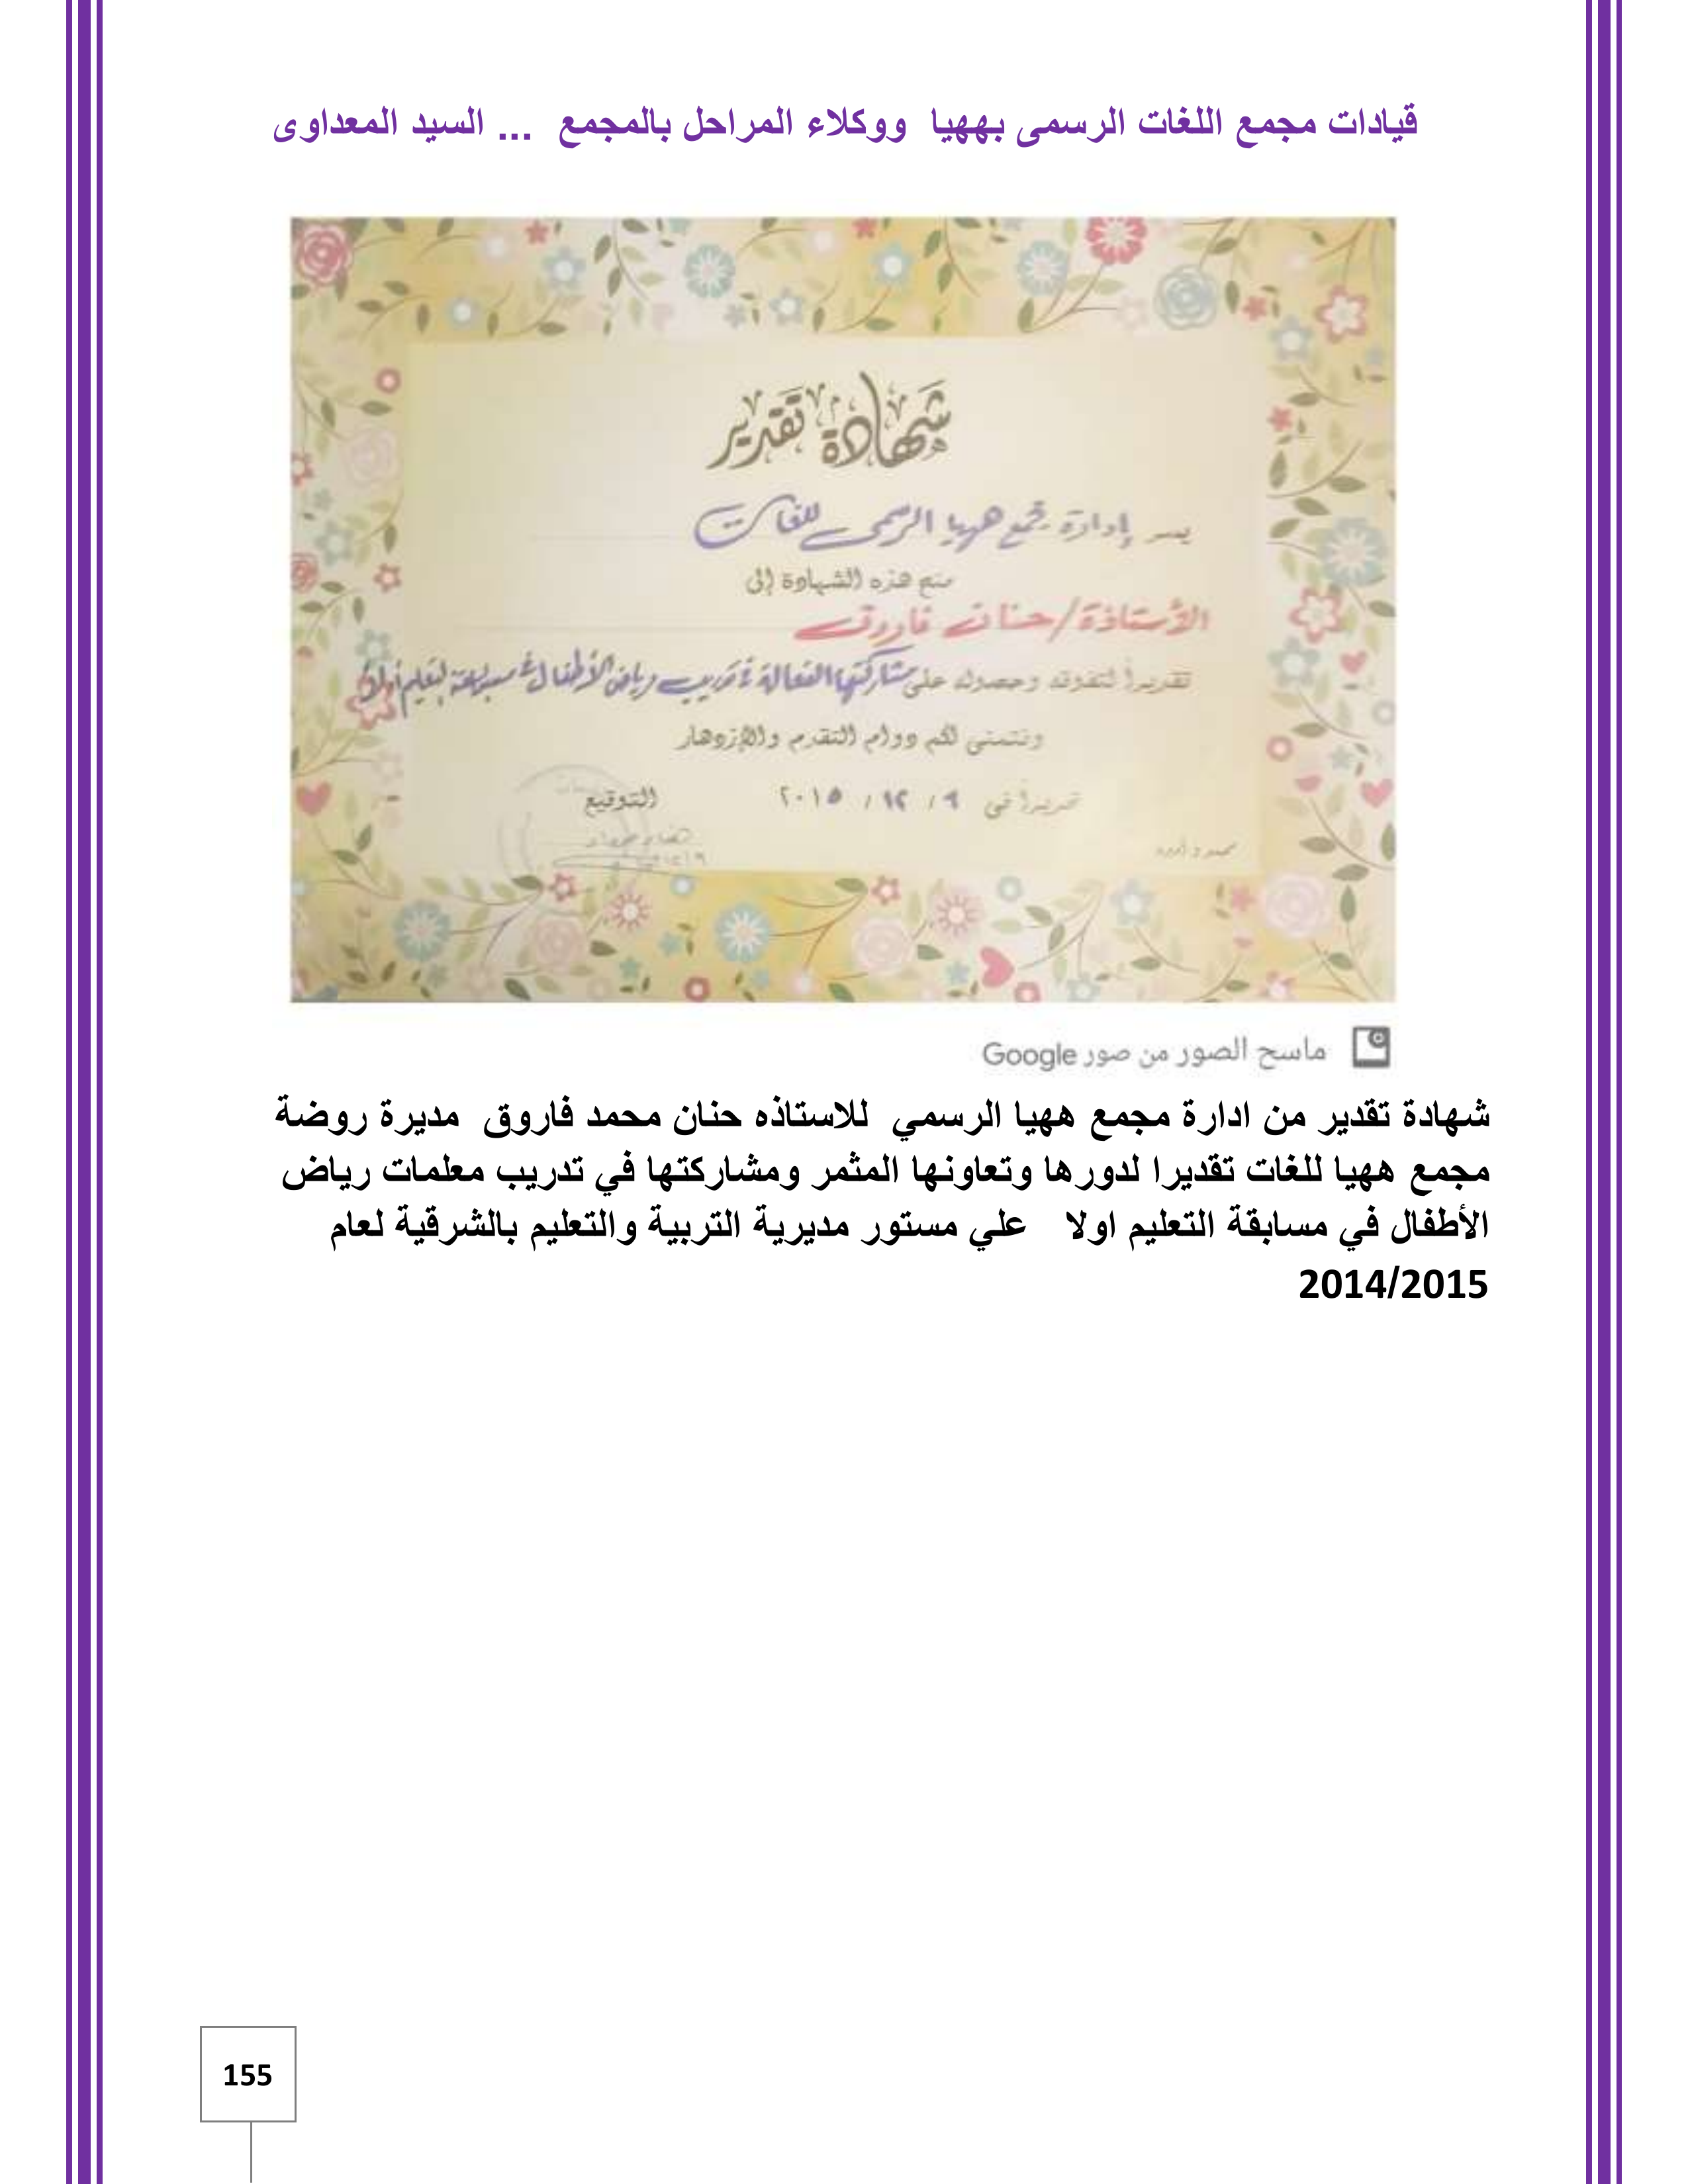 قيادات مجمع اللغات الرسمى بههيا ووكلاء المراحل بالمجمع ... السيد المعداوى
شهادة تقدير
يسر إدارة مجمع ههيا الرسمى للغات
منح هذه الشهادة إلى
الأستاذة/حنان فاروق
تقديراً لتفوقه وحصوله على مشاركتها الفعالة فى تدريب رياض الأطفال فى مسابقة التعليم أولاً
ونتمنى لكم دوام التقدم والإزدهار
تحريراً فى ٩ / ١٢ / ٢٠١٥ التوقيع
ماسح الصور من صور Google
شهادة تقدير من ادارة مجمع ههيا الرسمي للاستاذه حنان محمد فاروق مديرة روضة
مجمع ههيا للغات تقديرا لدورها وتعاونها المثمر ومشاركتها في تدريب معلمات رياض
الأطفال في مسابقة التعليم اولا علي مستور مديرية التربية والتعليم بالشرقية لعام
2014/2015
155